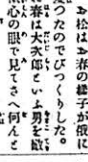 A松はA春の様子が俄に
変つたのでびつくりした。
A春は大次郎といふ男を欺
心の眼で見てさ、何んと